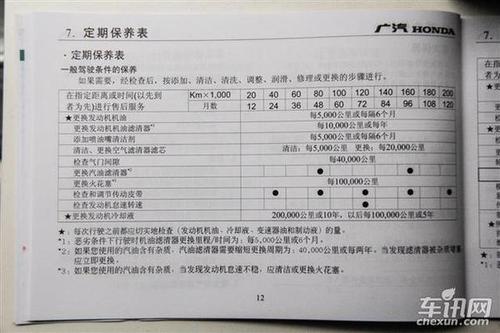 7. 定期保养表
广汽 HONDA
7.
· 定期保养表
一般驾驶条件的保养
如果需要,经检查后,按添加、清洁、清洗、调整、润滑、修理或更换的步骤进行。
在指定距离或时间(以先到 Km×1,000 20 40 60 80 100 120 140 160 180 200
者为先)进行售后服务 月数 12 24 36 48 60 72 84 96 108 120
★更换发动机机油 每5,000公里或每隔6个月
更换发动机机油滤清器*1 每10,000公里或每年
添加喷油嘴清洁剂 每5,000公里或每隔6个月
清洁、更换空气滤清器滤芯 清洁:每5,000公里 更换:每20,000公里
检查气门间隙 每40,000公里
更换汽油滤清器*2 ● ●
更换火花塞*3 每100,000公里
检查和调节传动皮带 ● ● ● ● ●
检查发动机怠速转速 ●
★更换发动机冷却液 200,000公里或10年,以后每100,000公里或5年
★:每次行驶之前都应切实地检查(发动机机油、冷却液、变速器油和制动液)的量。
*1:恶劣条件下行驶时机油滤清器更换里程/时间为:每5,000公里或6个月。
*2:如果您使用的汽油含有杂质,汽油滤清器需要缩短更换周期为:40,000公里或每两年。当发现滤清器被杂质堵塞
应立即更换。
*3:如果您使用的汽油含有杂质,当发现发动机怠速不稳,应清洁或更换火花塞。
12
车讯网
chexun.com